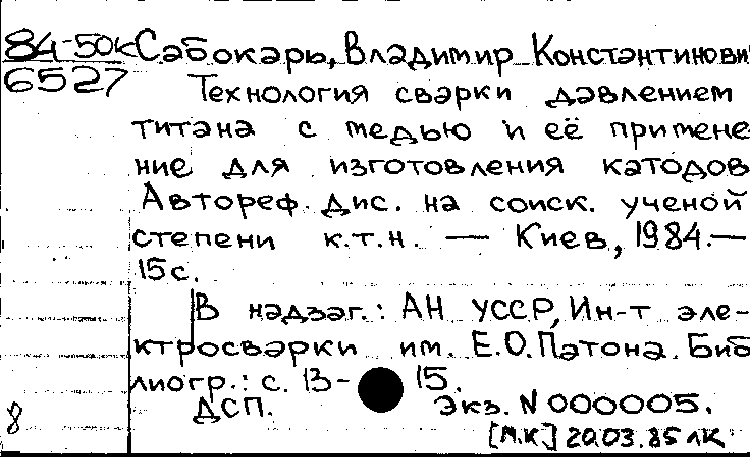 84-50к Сабокарь, Владимир Константинови
6527
Технология сварки давлением
титана с медью и её примене
ние для изготовления катодов
Автореф. дис. на соиск. ученой
степени к.т.н. — Киев, 1984.—
15 с.
В надзаг.: АН УССР, Ин-т эле-
ктросварки им. Е.О.Патона. Биб
лиогр.: с. 13-15.
ДСП. Экз. N 000005.
8
[М.К] 20.03.85 ЛК